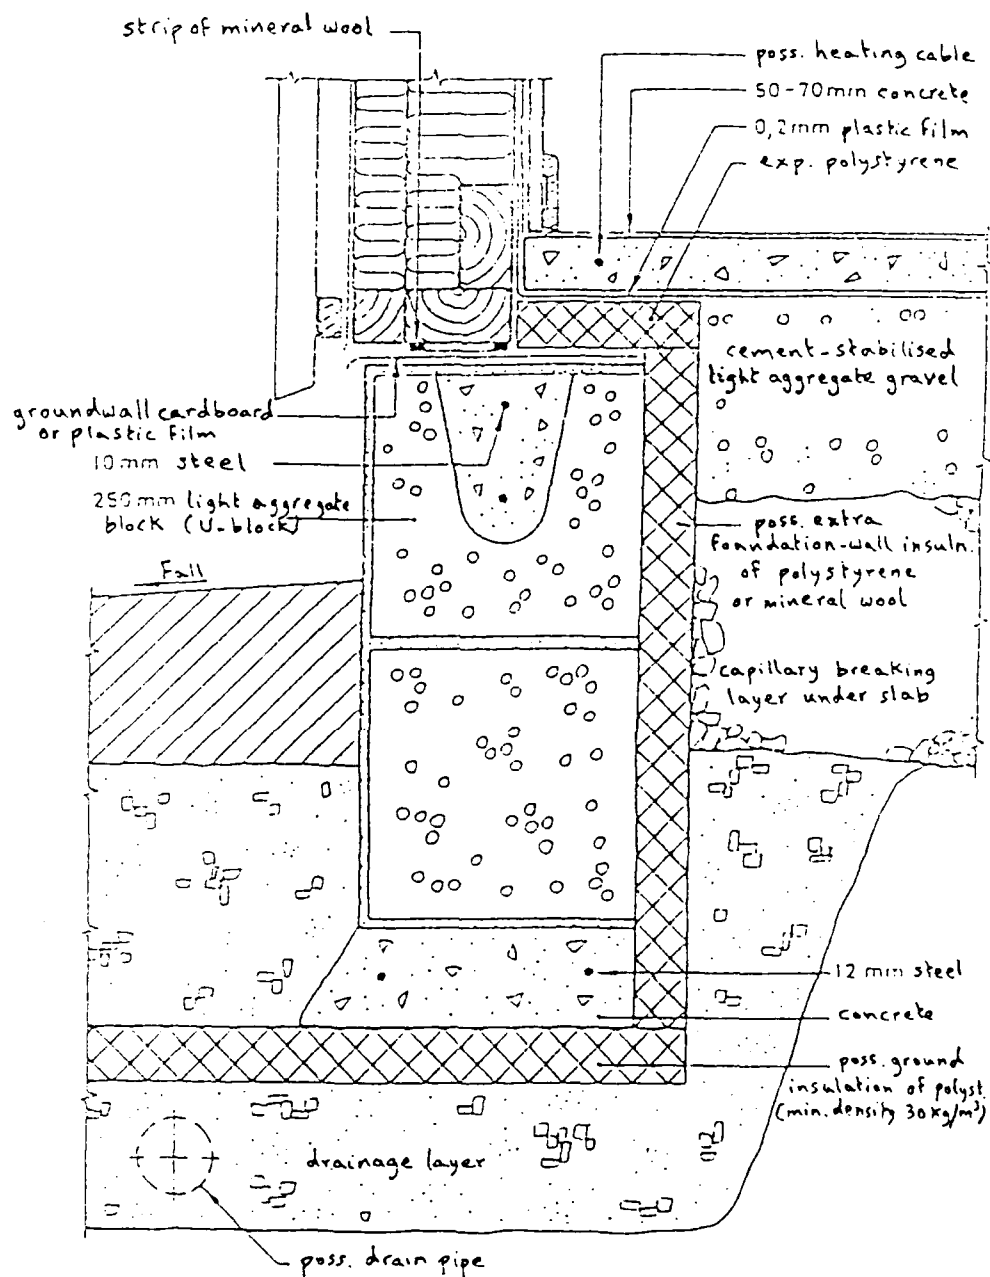 strip of mineral wool
poss. heating cable
50-70mm concrete
0,2mm plastic film
exp. polystyrene
cement-stabilised
light aggregate gravel
groundwall cardboard
or plastic film
10mm steel
250mm light aggregate
block (U-block)
poss. extra
foundation-wall insuln.
of polystyrene
or mineral wool
Fall
capillary breaking
layer under slab
12 mm steel
concrete
poss. ground
insulation of polyst.
(min. density 30 kg/m³)
drainage layer
poss. drain pipe